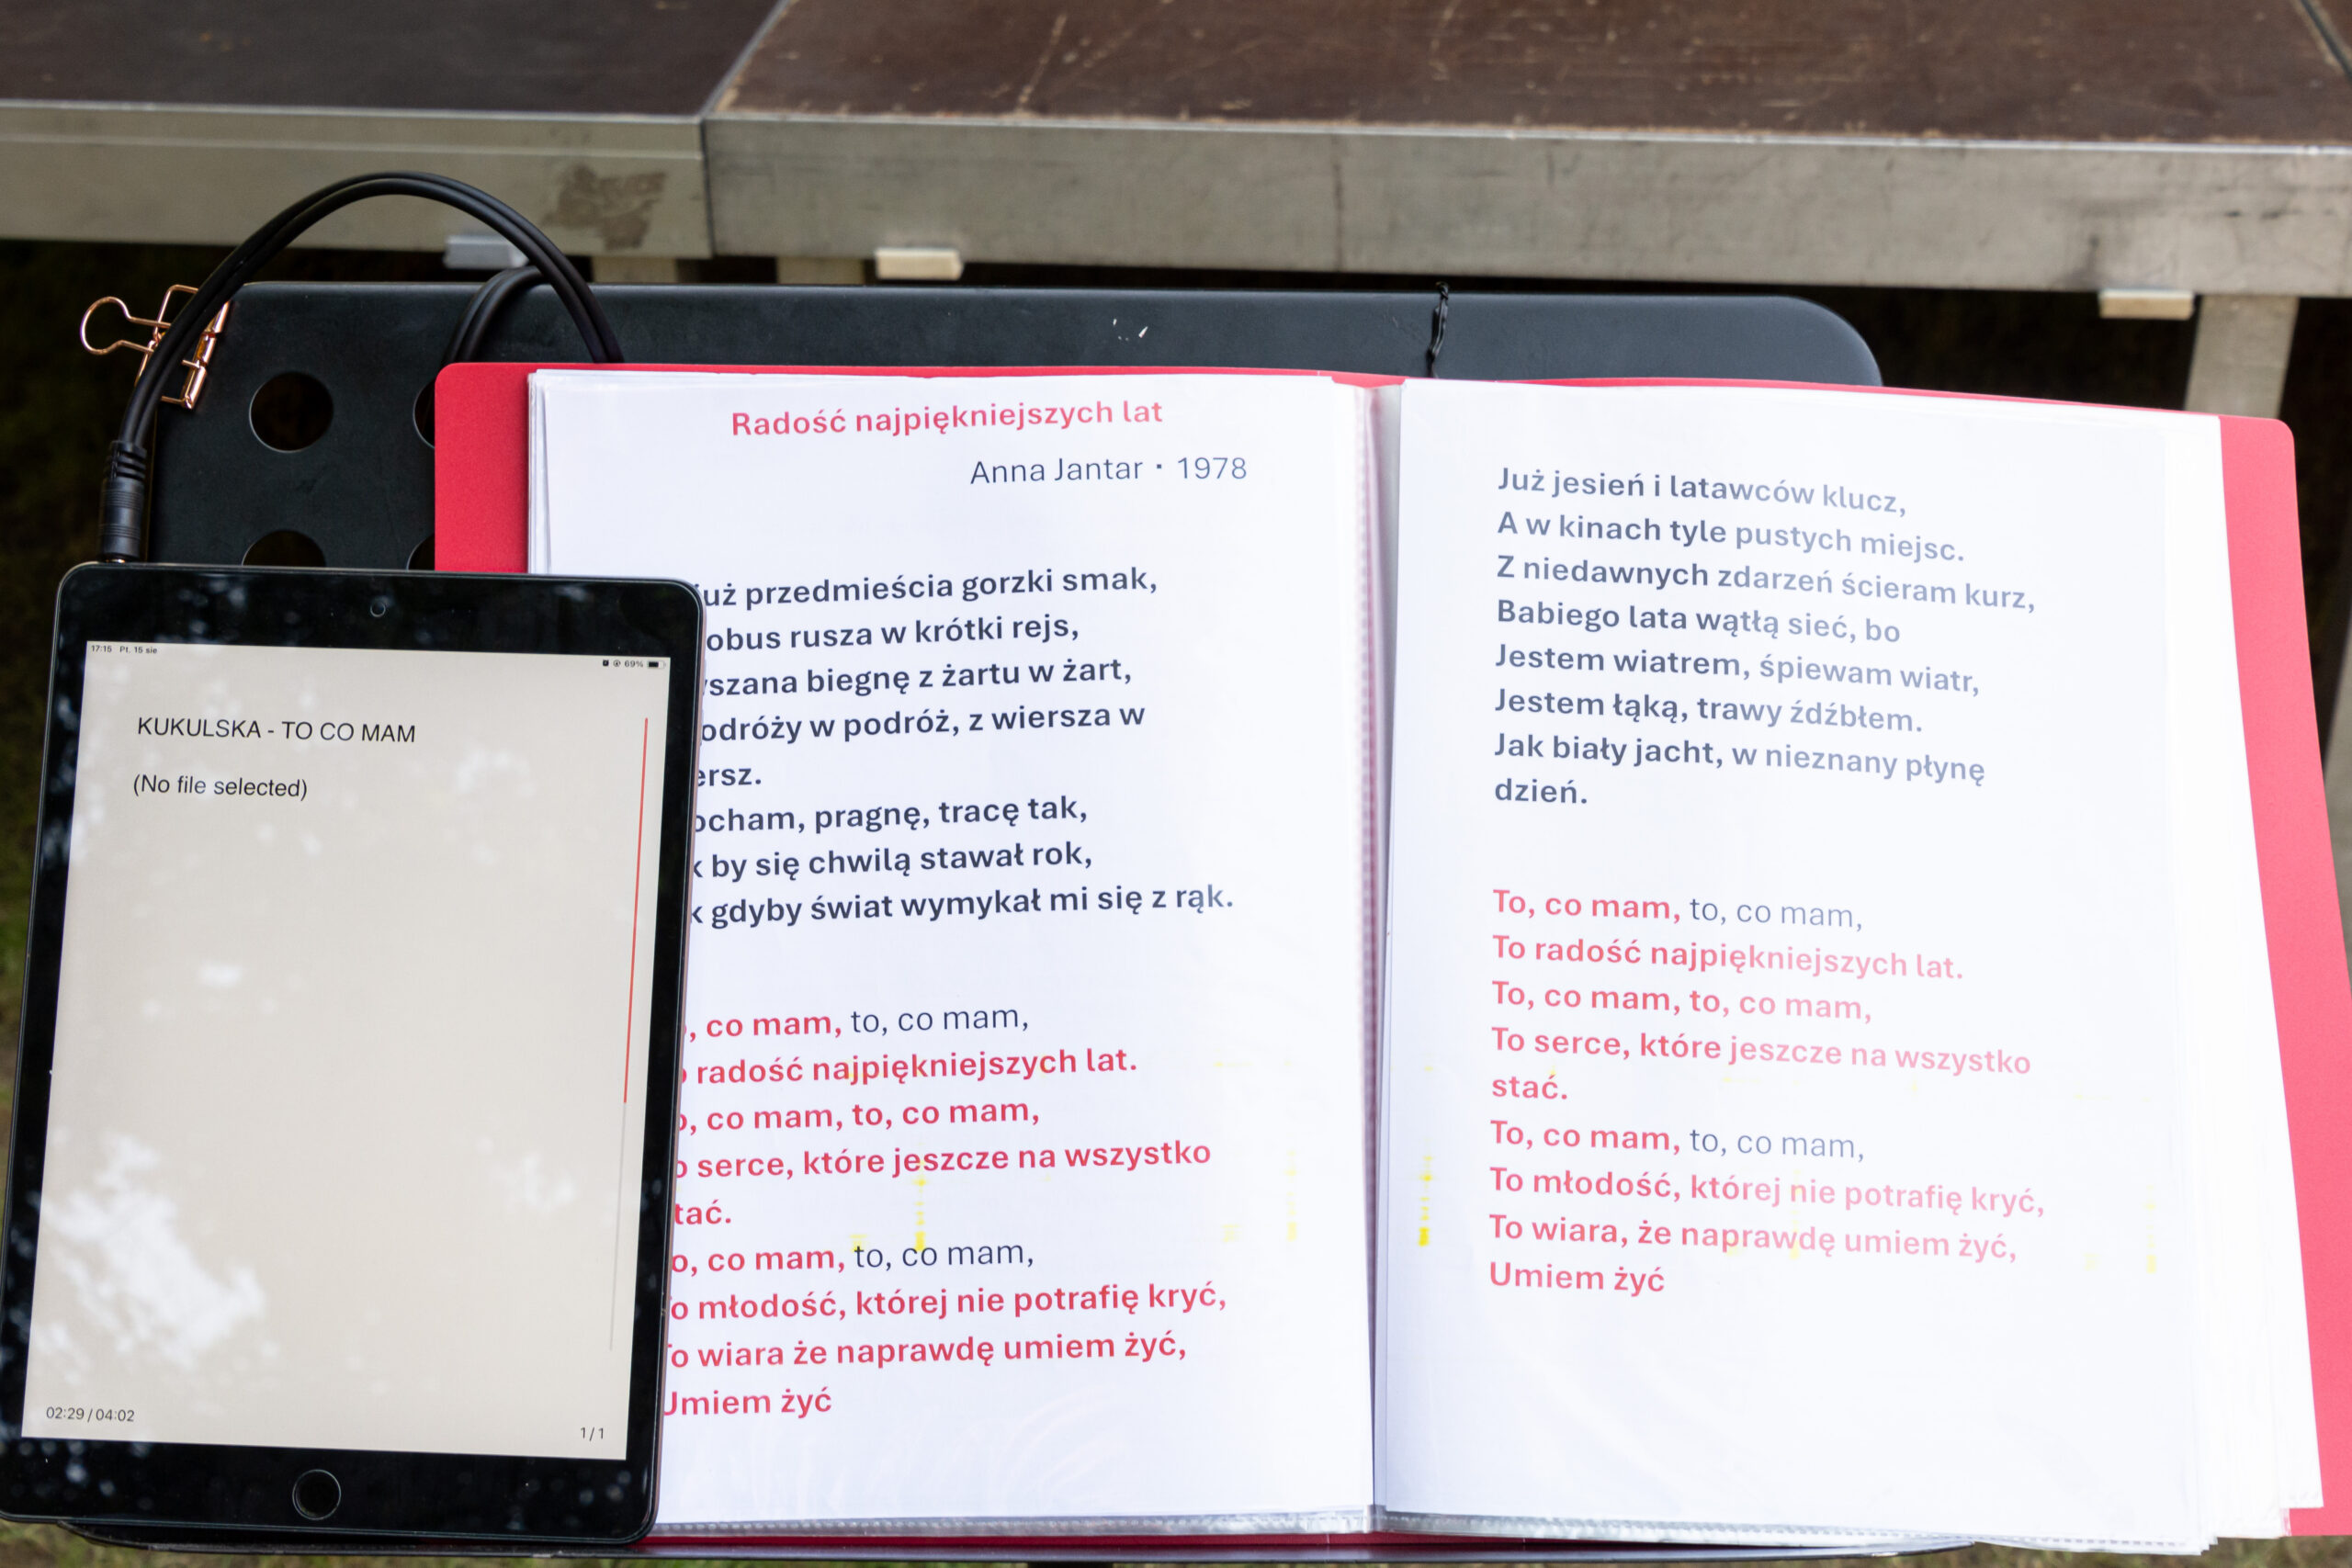 17:15 Pt. 15 sie
69%
KUKULSKA - TO CO MAM
(No file selected)
02:29 / 04:02
1/1
Radość najpiękniejszych lat
Anna Jantar · 1978
uż przedmieścia gorzki smak,
obus rusza w krótki rejs,
szana biegnę z żartu w żart,
odróży w podróż, z wiersza w
ersz.
ocham, pragnę, tracę tak,
k by się chwilą stawał rok,
k gdyby świat wymykał mi się z rąk.
, co mam, to, co mam,
o radość najpiękniejszych lat.
o, co mam, to, co mam,
o serce, które jeszcze na wszystko
tać.
o, co mam, to, co mam,
o młodość, której nie potrafię kryć,
To wiara że naprawdę umiem żyć,
Umiem żyć
Już jesień i latawców klucz,
A w kinach tyle pustych miejsc.
Z niedawnych zdarzeń ścieram kurz,
Babiego lata wątłą sieć, bo
Jestem wiatrem, śpiewam wiatr,
Jestem łąką, trawy źdźbłem.
Jak biały jacht, w nieznany płynę
dzień.
To, co mam, to, co mam,
To radość najpiękniejszych lat.
To, co mam, to, co mam,
To serce, które jeszcze na wszystko
stać.
To, co mam, to, co mam,
To młodość, której nie potrafię kryć,
To wiara, że naprawdę umiem żyć,
Umiem żyć